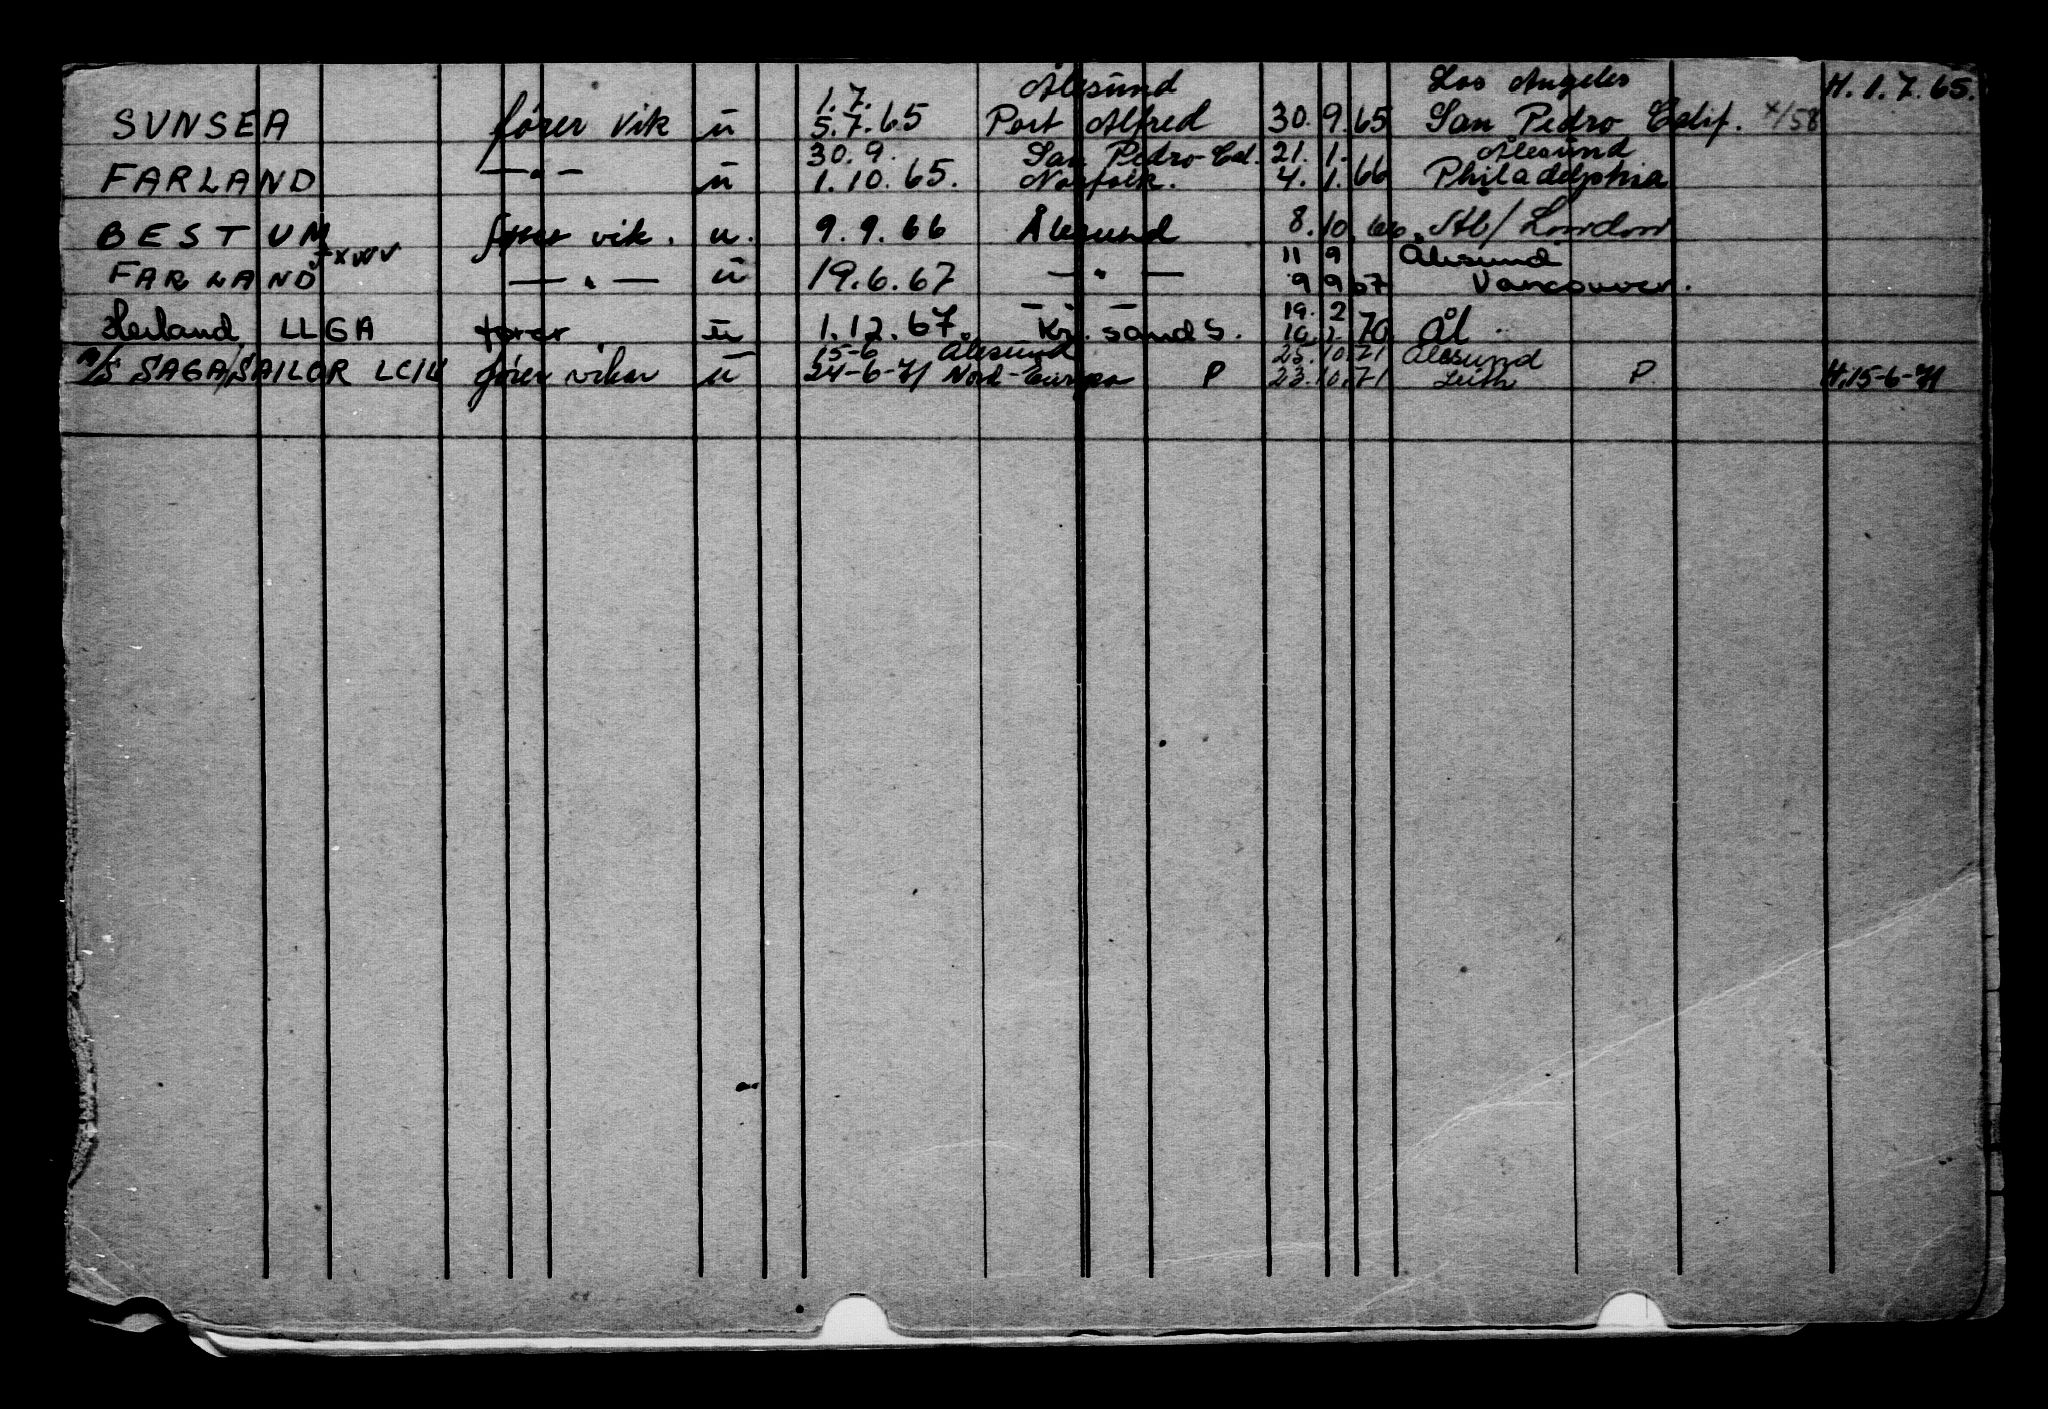 Ålesund Los Angeles H. 1.7.65.
SUNSEA fører vik u 1.7. 5.7.65 Port Alfred 30. 9. 65 San Pedro Calif. x/58
30. 9. San Pedro Cal. 21. 1. Ålesund
FARLAND — " — u 1. 10. 65. Norfolk. 4. 1. 66 Philadelphia
BESTUM fører vik. u. 9. 9. 66 Ålesund 8. 10. 66. Ål/London
JXWV 11 9 Ålesund
FARLAND — " — u 19. 6. 67 — " — 9 9 67 Vancouver.
19. 2
Herland LLGA fører u 1. 12. 67. Kr. sand S. 10. 70 Ål
15-6 Ålesund 25. 10. 71 Ålesund
M/S SAGA SAILOR fører vikar u 24-6-71 Nord-Europa P 23. 10. 71 Leith P. H. 15-6-71